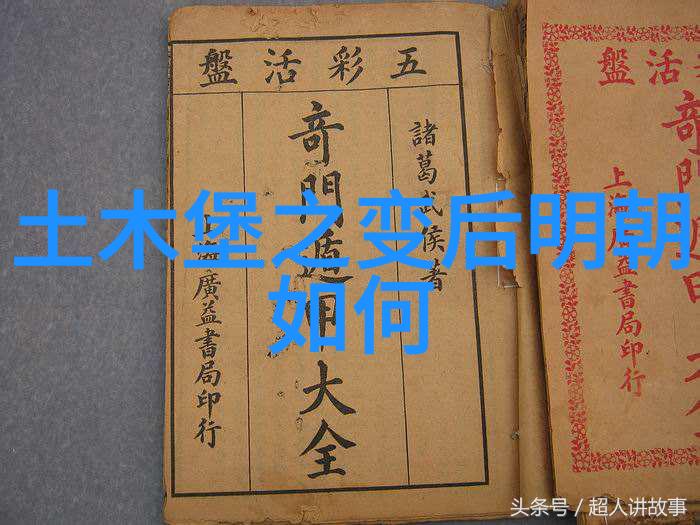 土木堡之变后明朝
如何
五彩活盤
諸葛武侯著
奇門遁甲大全
上海廣益書局印行
活盤
奇門遁甲大全
上海廣益書局印行
头条号 / 超人讲故事